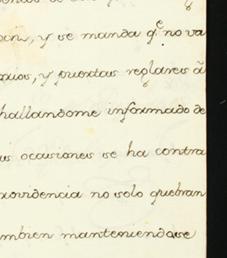 y se manda q.e no va
y puertas reglares á
hallandome informado de
us ocasiones se ha contra
rovidencia no solo quebran
mbien manteniendose